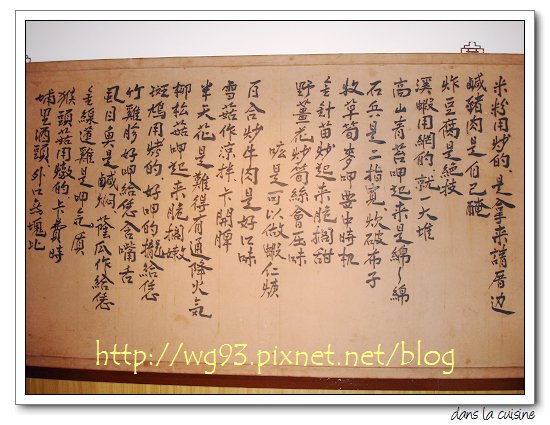 米粉用炒的是拿来請厝边
鹹豬肉是自己醃
炸豆腐是絕技
溪蝦用網的就一大堆
高山有呷起来是綿々綿
石兵是二指寬炊破布子
牧草筍呷要出時机
金針炒起来脆擱甜
野薑花炒筍絲會
是可以做蝦仁
百合炒牛肉是好口味
雪菇作凉拌卡開脾
半天花是難得有通降火气
柳松菇呷起来脆擱嫩
斑鳩用烤的好呷的攏給恁
竹雞胗好呷給恁含嘴舌
虱目魚是鹹焖．蔭瓜作給恁
金線連雞是呷气質
猴頭菇用燉的卡費時
埔里酒頭外口無塊比
http://wg93.pixnet.net/blog
dans la cuisine